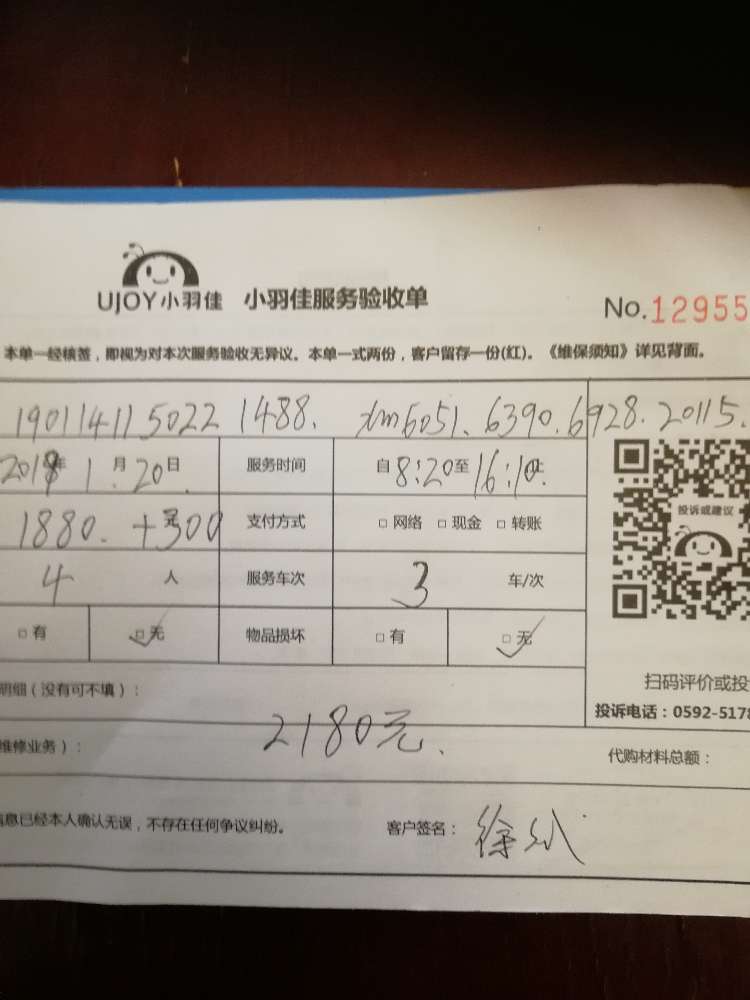 UJOY小羽佳 小羽佳服务验收单
No.12955
本单一经核签，即视为对本次服务验收无异议。本单一式两份，客户留存一份(红)。《维保须知》详见背面。
190114115022 1488. xm6051. 6390. 6928. 20115.
2019年 1月20日 服务时间 自8:20至16:10止
1880. +300 支付方式 □ 网络 □ 现金 □ 转账
4 人 服务车次 3 车/次
□ 有 □ 无 物品损坏 □ 有 □ 无
投诉或建议
扫码评价或投
明细（没有可不填）：
投诉电话：0592-5178
2180元.
维修业务）： 代购材料总额：
信息已经本人确认无误，不存在任何争议纠纷。 客户签名： 徐